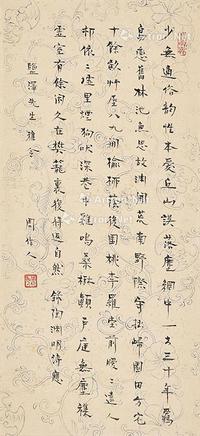 少無適俗韻性本愛丘山誤落塵網中一去三十年羈
鳥戀舊林池魚思故淵開荒南野際守拙歸園田方宅
十餘畝艸屋八九間榆柳蔭後園桃李羅堂前曖〻遠人
邨依〻墟里煙狗吠深巷中雞鳴桑樹顛戶庭無塵雜
虛室有餘閑久在樊籠裏復得返自然 錄陶淵明詩應
鹽澤先生雅令 周作人